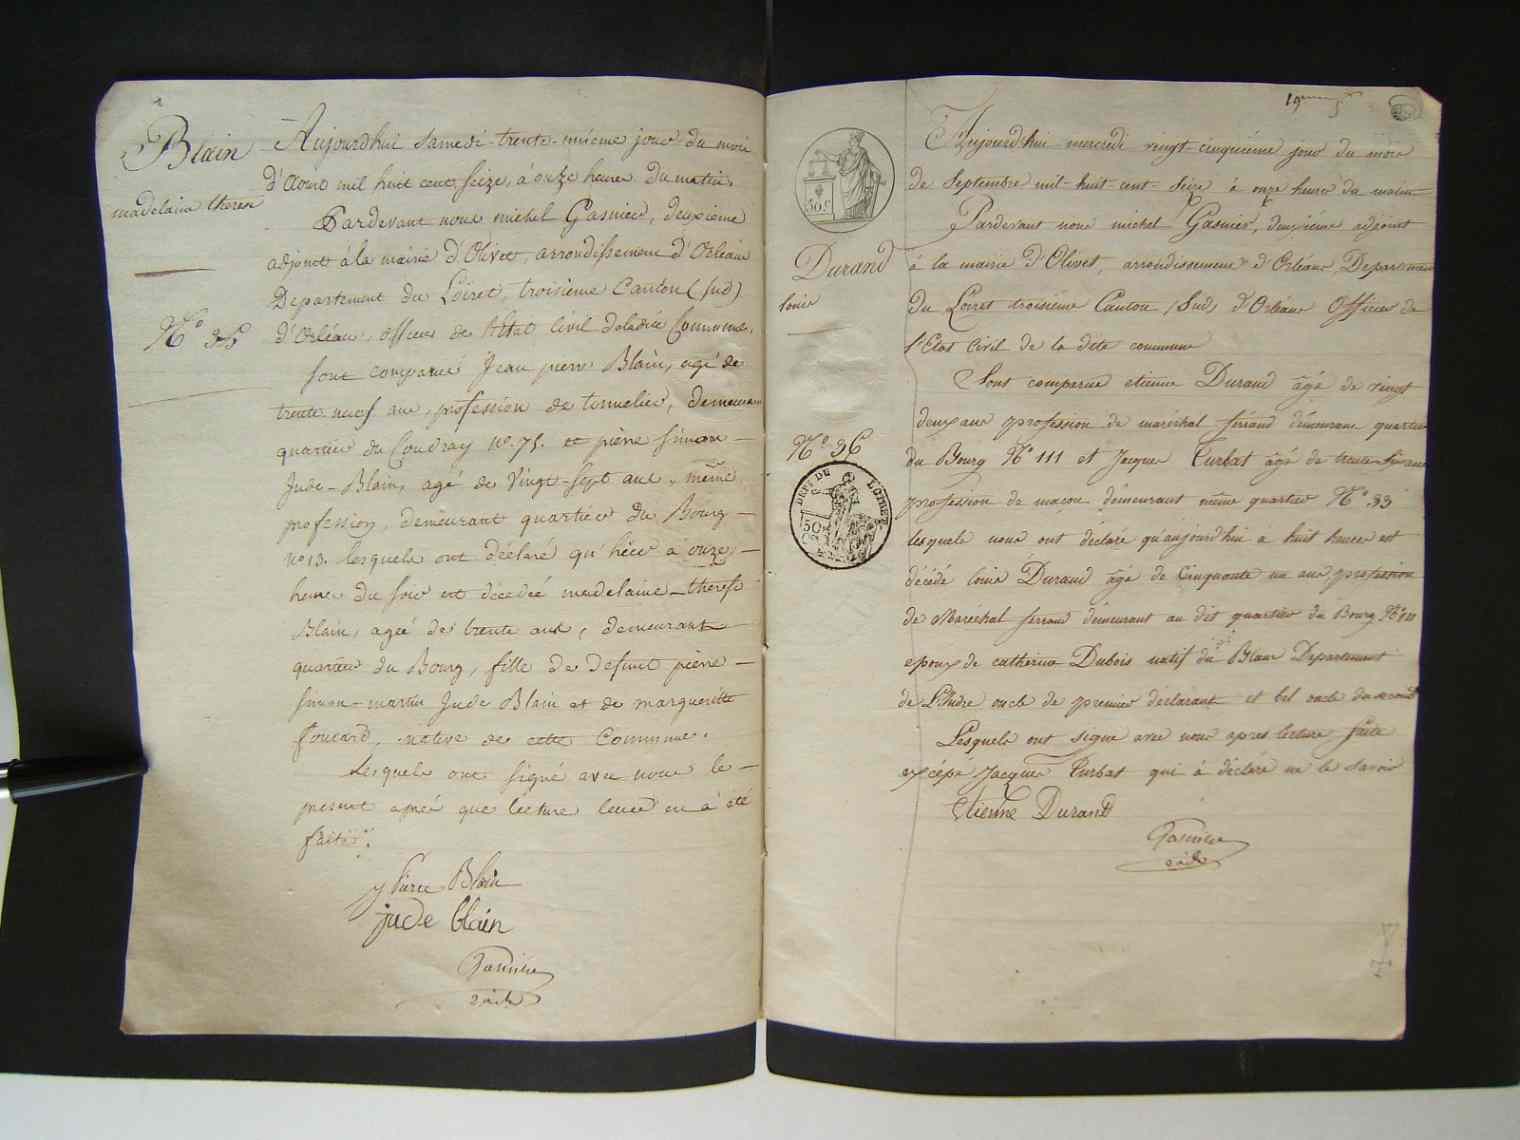 Blain
madelaine therese
N.o 35
Aujourd'hui samedi trente-unieme jour du mois
d'Aout mil huit cent seize, à onze heures du matin,
Pardevant nous michel Gasnier, deuxième
adjoint à la mairie d'Olivet, arrondissement d'Orléans
Departement du Loiret, troisième Canton (sud)
d'Orléans, officier de l'état Civil de ladite Commune,
sont comparus Jean pierre Blain, agé de
trente neuf ans, profession de tonnelier, demeurant
quartier du Coudray n.o 75. et pierre simon
Jude-Blain, agé de vingt-sept ans, même
profession, demeurant quartier du Bourg
n.o 13. lesquels ont déclaré qu'hier à onze
heures du soir est décédée madelaine-therese
Blain, agée de trente ans, demeurant
quartier du Bourg, fille de defunt pierre
simon-martin Jude Blain et de marguerite
foucard, native de cette Commune.
Lesquels ont signé avec nous le
present après que lecture leur en a été
faite.
j pierre Blain
jude blain
Gasnier
adj.
50 c
Durand
louis
N.o 36
DEPT DE LOIRET
50
Aujourd'hui mercredi vingt-cinquième jour du mois
de Septembre mil-huit-cent-seize à onze heures du matin
Pardevant nous michel Gasnier, deuxième adjoint
à la mairie d'Olivet, arrondissement d'Orléans Departement
du Loiret troisième Canton (Sud) d'Orléans Officier de
l'Etat Civil de la dite commune
Sont comparus etienne Durand âgé de vingt
deux ans profession de maréchal ferrand demeurant quartier
du Bourg N.o 111 et Jacques Turbat âgé de trente ans
profession de maçon demeurant même quartier N.o 33
lesquels nous ont déclaré qu'aujourd'hui a huit heures est
décédé louis Durand âgé de Cinquante un ans profession
de Maréchal ferrand demeurant au dit quartier du Bourg N.o 111
epoux de catherine Dubois natif du Blanc Departement
de L'Indre oncle de premier déclarant et bel oncle du second
Lesquels ont signe avec nous apres lecture faite
excépé Jacques Turbat qui à déclaré ne le savoir
Etienne Durand
Gasnier
adj.